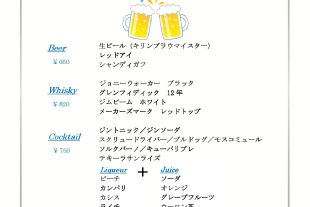 Beer
¥650
生ビール（キリンブラウマイスター）
レッドアイ
シャンディガフ
Whisky
¥820
ジョニーウォーカー　ブラック
グレンフィディック　12年
ジムビーム　ホワイト
メーカーズマーク　レッドトップ
Cocktail
¥750
ジントニック／ジンソーダ
スクリュードライバー／ブルドッグ／モスコミュール
ソルクバーノ／キューバリブレ
テキーラサンライズ
Liqueur + Juice
ピーチ　ソーダ
カンパリ　オレンジ
カシス　グレープフルーツ
ライチ　ウーロン茶